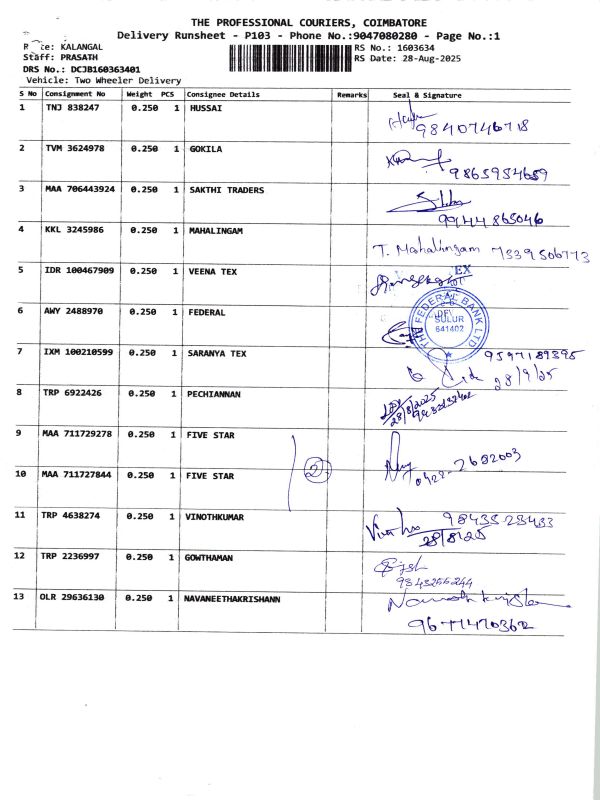 THE PROFESSIONAL COURIERS, COIMBATORE
Delivery Runsheet - P103 - Phone No.:9047080280 - Page No.:1
KALANGAL
RS No.: 1603634
Staff: PRASATH
RS Date: 28-Aug-2025
DRS No.: DCJB160363401
Vehicle: Two Wheeler Delivery
S No Consignment No Weight PCS Consignee Details Remarks Seal & Signature
1 TNJ 838247 0.250 1 HUSSAI
9840746718
2 TVM 3624978 0.250 1 GOKILA
9865954659
3 MAA 706443924 0.250 1 SAKTHI TRADERS
9944865046
4 KKL 3245986 0.250 1 MAHALINGAM
T. Mahalingam 7339506773
5 IDR 100467909 0.250 1 VEENA TEX
EX
6 AWY 2488970 0.250 1 FEDERAL
THE FEDERAL BANK LTD
SULUR
641402
7 IXM 100210599 0.250 1 SARANYA TEX
9597189395
28/9/25
8 TRP 6922426 0.250 1 PECHIANNAN
28/8/2025
9 MAA 711729278 0.250 1 FIVE STAR
2
0422-2682003
10 MAA 711727844 0.250 1 FIVE STAR
11 TRP 4638274 0.250 1 VINOTHKUMAR
9843523433
28/8/25
12 TRP 2236997 0.250 1 GOWTHAMAN
9843256244
13 OLR 29636130 0.250 1 NAVANEETHAKRISHANN
9677470362